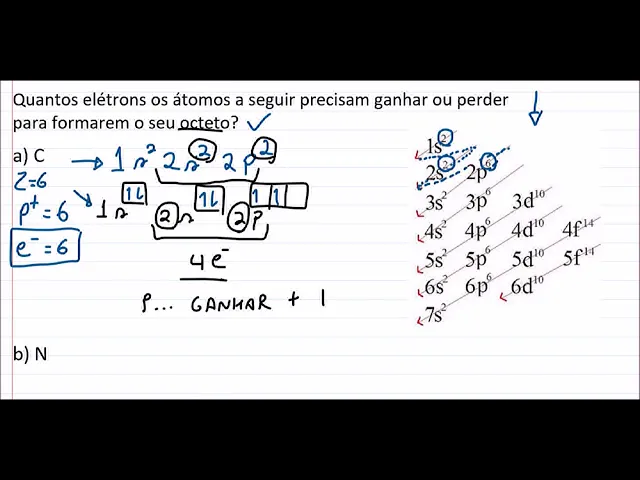 Quantos elétrons os átomos a seguir precisam ganhar ou perder
para formarem o seu octeto?
a) C
1s² 2s² 2p²
Z=6
p⁺ = 6
e⁻ = 6
1s 2s 2p
4e⁻
P... GANHAR + 1
b) N
1s²
2s² 2p⁶
3s² 3p⁶ 3d¹⁰
4s² 4p⁶ 4d¹⁰ 4f¹⁴
5s² 5p⁶ 5d¹⁰ 5f¹⁴
6s² 6p⁶ 6d¹⁰
7s²